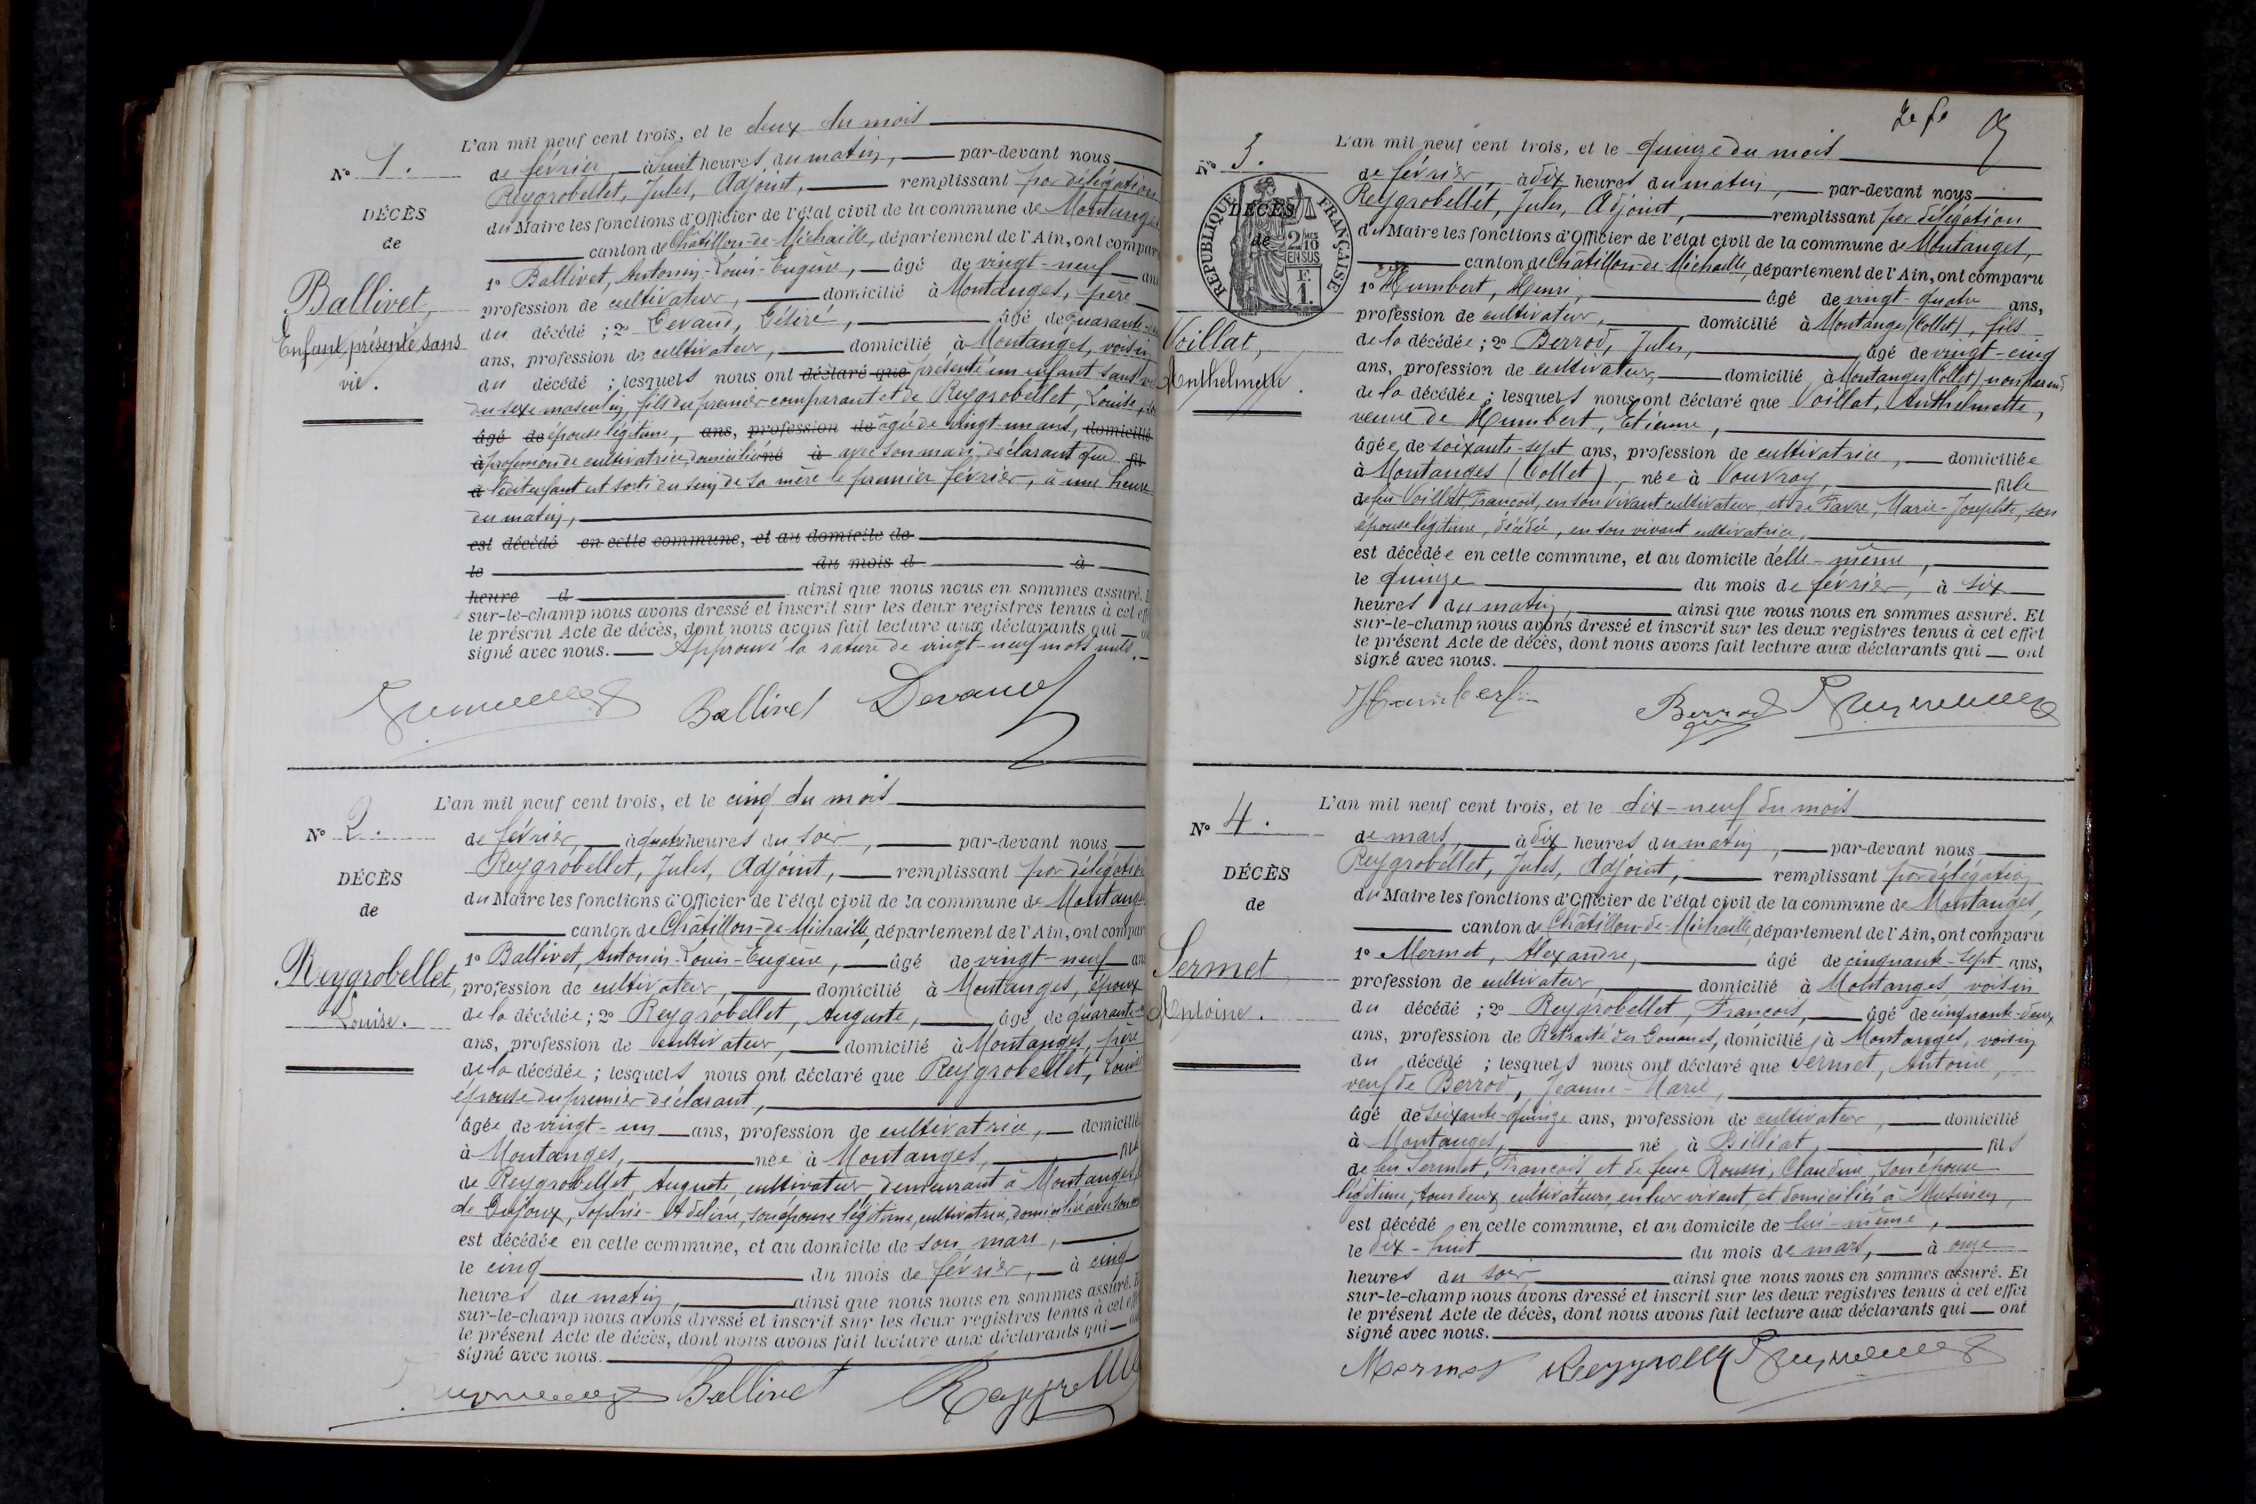 L'an mil neuf cent trois, et le deux du mois
N° 1.
de février, à huit heures du matin, par-devant nous
Reygrobellet, Jules, Adjoint, remplissant par délégation
DÉCÈS
du Maire les fonctions d'Officier de l'état civil de la commune de Montanges
de
canton de Châtillon-de-Michaille, département de l'Ain, ont compar
1° Ballivet, Antonin-Louis-Eugène, âgé de vingt-neuf ans
Ballivet,
profession de cultivateur, domicilié à Montanges, père
Enfant présenté sans
du décédé ; 2° âgé de quarante
vie.
ans, profession de cultivateur, domicilié à Montanges, voisin
du décédé ; lesquels nous ont déclaré que présenté un enfant sans vie
du sexe masculin, fils du premier comparant et de Reygrobellet, Louise,
âgé de épouse légitime, ans, profession de âgée de vingt-un ans, domicilié
à profession de cultivatrice, domiciliée né à avec son mari, déclarant que fil
d ledit enfant est sorti du sein de sa mère le premier février, à une heure
du matin,
est décédé en cette commune, et au domicile de
le du mois d à
heure d ainsi que nous nous en sommes assuré. E
sur-le-champ nous avons dressé et inscrit sur les deux registres tenus à cet eff
le présent Acte de décès, dont nous avons fait lecture aux déclarants qui
signé avec nous. Approuvé la rature de vingt-neuf mots nuls.
Ballivet Devaud
L'an mil neuf cent trois, et le cinq du mois
N° 2.
de février, à quatre heures du soir, par-devant nous
Reygrobellet, Jules, Adjoint, remplissant par délégation
DÉCÈS
du Maire les fonctions d'Officier de l'état civil de la commune de Montanges
de
canton de Châtillon-de-Michaille, département de l'Ain, ont compar
Reygrobellet,
1° Ballivet, Antonin-Louis-Eugène, âgé de vingt-neuf ans
profession de cultivateur, domicilié à Montanges, époux
Louise.
de la décédée ; 2° Reygrobellet, Auguste, âgé de quarante
ans, profession de cultivateur, domicilié à Montanges, père
de la décédée ; lesquels nous ont déclaré que Reygrobellet, Louise
épouse du premier déclarant,
âgée de vingt-un ans, profession de cultivatrice, domiciliée
à Montanges, née à Montanges, fille
de Reygrobellet, Auguste, cultivateur, demeurant à Montanges,
de Cujoux, Sophie-Adeline, son épouse légitime, cultivatrice, domiciliée avec son
est décédée en cette commune, et au domicile de son mari,
le cinq du mois de février, à cinq
heures du matin, ainsi que nous nous en sommes assuré. E
sur-le-champ nous avons dressé et inscrit sur les deux registres tenus à cet eff
le présent Acte de décès, dont nous avons fait lecture aux déclarants qui
signé avec nous.
Ballivet
L'an mil neuf cent trois, et le quinze du mois
N° 3.
de février, à dix heures du matin, par-devant nous
RÉPUBLIQUE FRANÇAISE
2/10 EN SUS
F. 1.
Reygrobellet, Jules, Adjoint, remplissant par délégation
DÉCÈS
du Maire les fonctions d'Officier de l'état civil de la commune de Montanges,
de
canton de Châtillon-de-Michaille, département de l'Ain, ont comparu
1° Humbert, Henri, âgé de vingt-quatre ans,
profession de cultivateur, domicilié à Montanges (Collet), fils
Voillat,
de la décédée ; 2° Berrod, Jules, âgé de vingt-cinq
Anthelmette.
ans, profession de cultivateur, domicilié à Montanges (Collet) non parent
de la décédée ; lesquels nous ont déclaré que Voillat, Anthelmette,
veuve de Humbert, Etienne,
âgée de soixante-sept ans, profession de cultivatrice, domiciliée
à Montanges (Collet), née à Vouvray, fille
de feu Voillat, François, en son vivant cultivateur, et de Favre, Marie-Josephte, son
épouse légitime, décédée, en son vivant cultivatrice,
est décédée en cette commune, et au domicile d'elle-même,
le quinze du mois de février, à six
heures du matin, ainsi que nous nous en sommes assuré. Et
sur-le-champ nous avons dressé et inscrit sur les deux registres tenus à cet effet
le présent Acte de décès, dont nous avons fait lecture aux déclarants qui ont
signé avec nous.
Humbert Berrod
L'an mil neuf cent trois, et le dix-neuf du mois
N° 4.
de mars, à dix heures du matin, par-devant nous
Reygrobellet, Jules, Adjoint, remplissant par délégation
DÉCÈS
du Maire les fonctions d'Officier de l'état civil de la commune de Montanges,
de
canton de Châtillon-de-Michaille, département de l'Ain, ont comparu
Sermet,
1° Mermet, Alexandre, âgé de cinquante-sept ans,
profession de cultivateur, domicilié à Montanges, voisin
Antoine.
du décédé ; 2° Reygrobellet, François, âgé de cinquante-deux
ans, profession de Retraité des Douanes, domicilié à Montanges, voisin
du décédé ; lesquels nous ont déclaré que Sermet, Antoine,
veuf de Berrod, Jeanne-Marie,
âgé de soixante-quinze ans, profession de cultivateur, domicilié
à Montanges, né à Billiat, fils
de feu Sermet, François et de feue Claudine, son épouse
légitime, tous deux cultivateurs en leur vivant, et domiciliés à
est décédé en cette commune, et au domicile de lui-même,
le dix-huit du mois de mars, à onze
heures du soir ainsi que nous nous en sommes assuré. Et
sur-le-champ nous avons dressé et inscrit sur les deux registres tenus à cet effet
le présent Acte de décès, dont nous avons fait lecture aux déclarants qui ont
signé avec nous.
Mermet